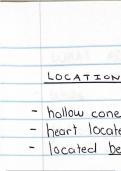 LOCATION
- hollow cone
- heart locate
- located be